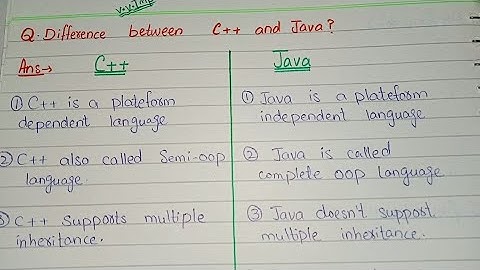 v.v.Imp
Q. Difference between C++ and Java?
Ans→ C++
① C++ is a plateform
dependent language
② C++ also called Semi-oop
language.
③ C++ Supports multiple
inheritance.
Java
① Java is a plateform
independent language
② Java is called
complete oop language
③ Java doesn't support
multiple inheritance.